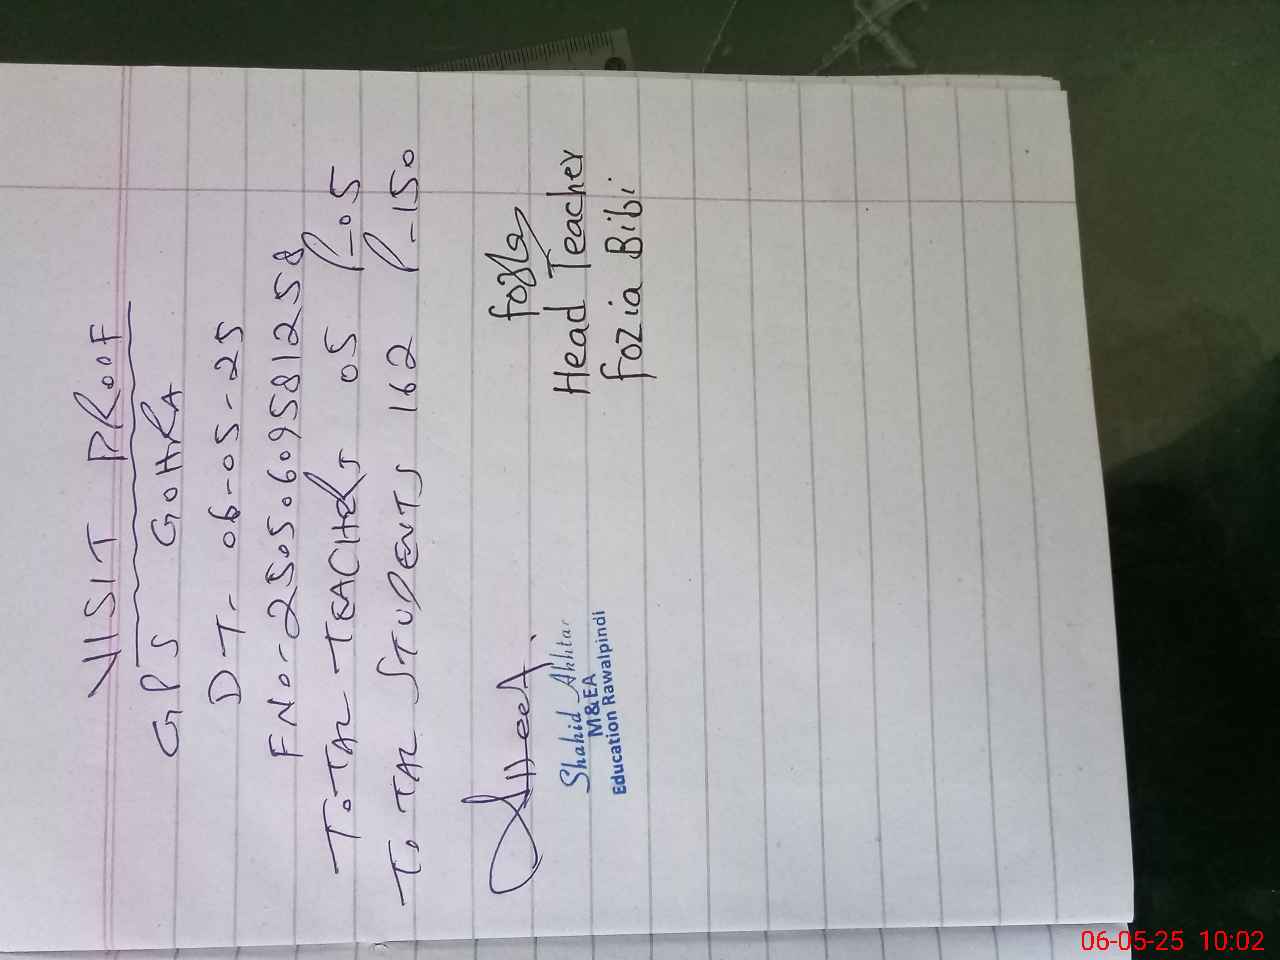 VISIT PROOF
GPS GOHRA
DT- 06-05-25
FNo-25050609581258
TOTAL TEACHERS 05 P-05
TOTAL STUDENTS 162 P-150
Shahid Akhtar
M&EA
Education Rawalpindi
Head Teacher
Fozia Bibi
06-05-25 10:02